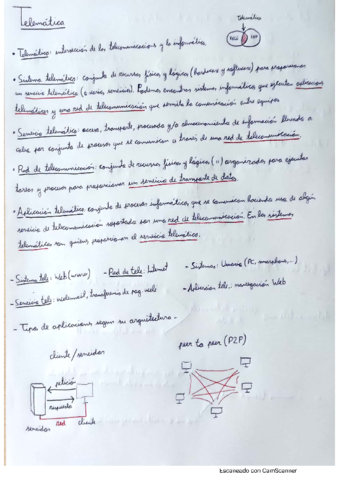 Telemática
Telemática
• Telemática: intersección de las telecomunicaciones y la informática
• Sistema telemático: conjunto de recursos físicos y lógicos (hardware y software) para proporcionar
un servicio telemático (o varios servicios). Podemos encontrar sistemas informáticos que ejecutan aplicaciones
telemáticas y una red de telecomunicación que permite la comunicación entre equipos.
• Servicio telemático: acceso, transporte, procesado y/o almacenamiento de información llevado a
cabo por conjunto de procesos que se comunican a través de una red de telecomunicación.
• Red de telecomunicación: conjunto de recursos físicos y lógicos (") organizados para ejecutar
tareas y procesos para proporcionar un servicio de transporte de datos.
• Aplicación telemática: conjunto de procesos informáticos, que se comunican haciendo uso de algún
servicio de telecomunicación soportado por una red de telecomunicación. En los sistemas
telemáticos son quienes proporcionan el servicio telemático.
- Sistema tele: Web (www) - Red de tele: Internet - Sistemas: Usuario (PC, smartphone, ..)
- Servicios tele: webmail, transferencia de pag. web - Aplicación tele: navegación Web
- Tipos de aplicaciones según su arquitectura -
cliente/servidor peer to peer (P2P)
petición
respuesta
servidor red cliente
Escaneado con CamScanner